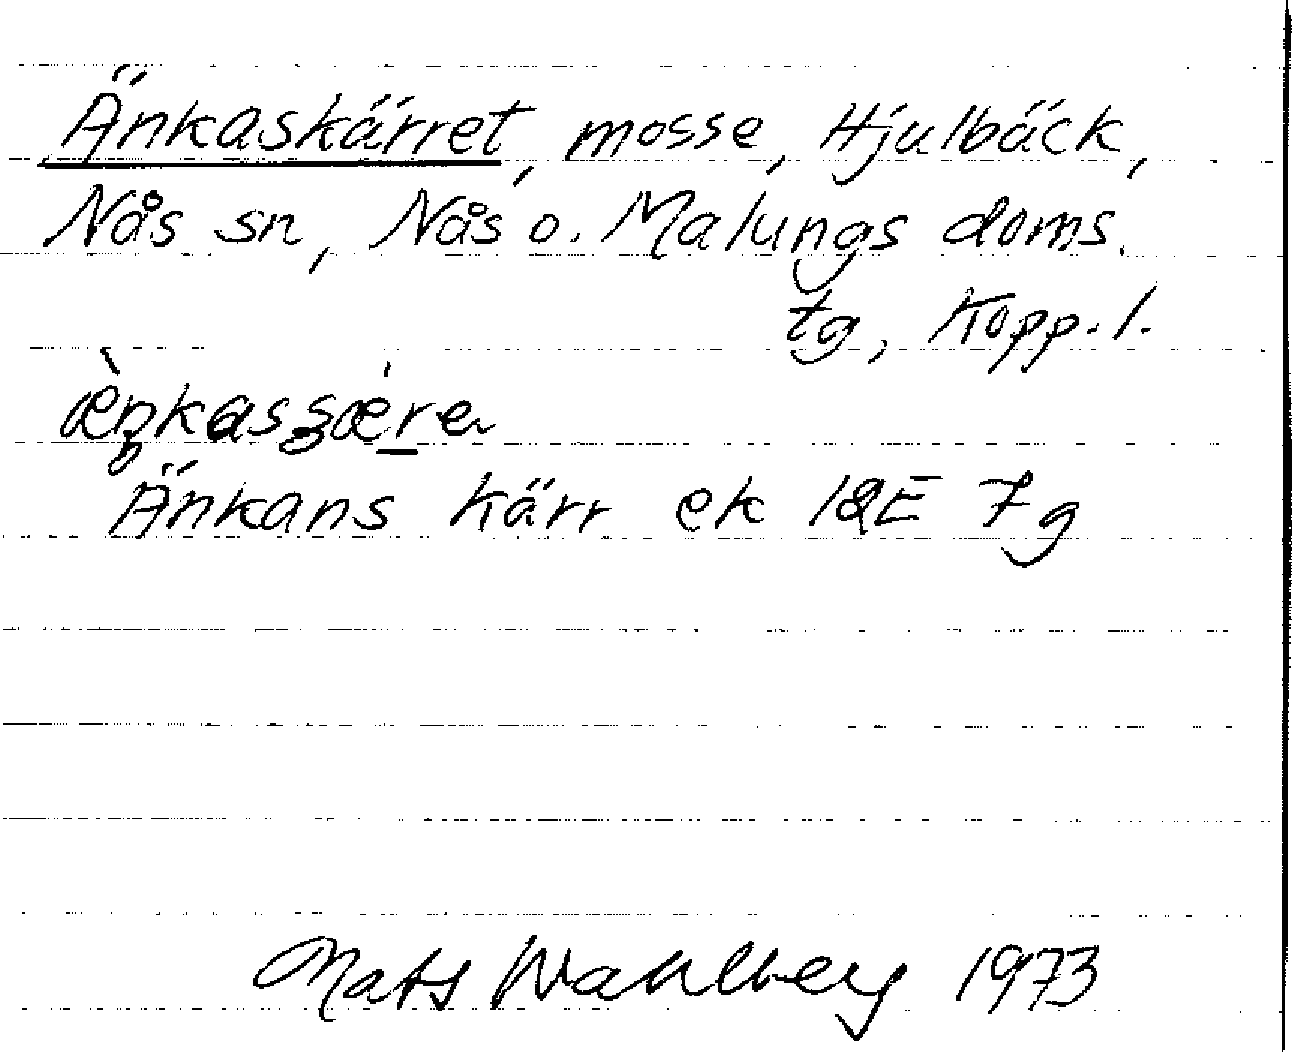 Änkaskärret, mosse, Hjulbäck,
Nås sn, Nås o. Malungs doms.
tg, Kopp. l.
Änkans kärr ek 12E 7g
Mats Wahlberg 1973